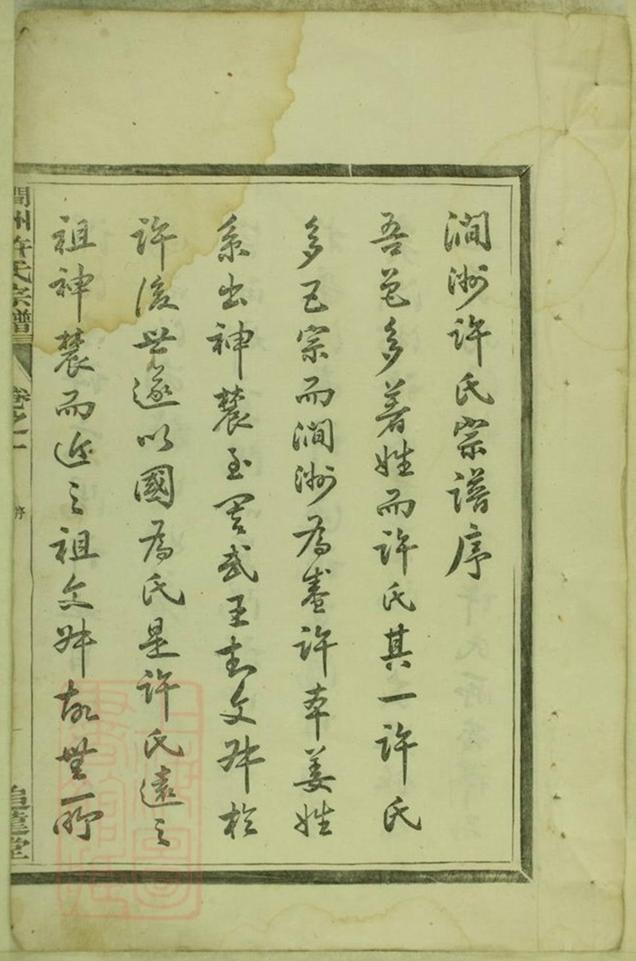 澗洲許氏宗譜序
吾邑多著姓而許氏其一許氏
多已宗而澗洲為蓋許本姜姓
系出神農至周武王封文叔於
許後世遂以國為氏是許氏遠之
祖神農而近之祖文叔故無所
澗洲許氏宗譜
卷之一
序
追遠堂